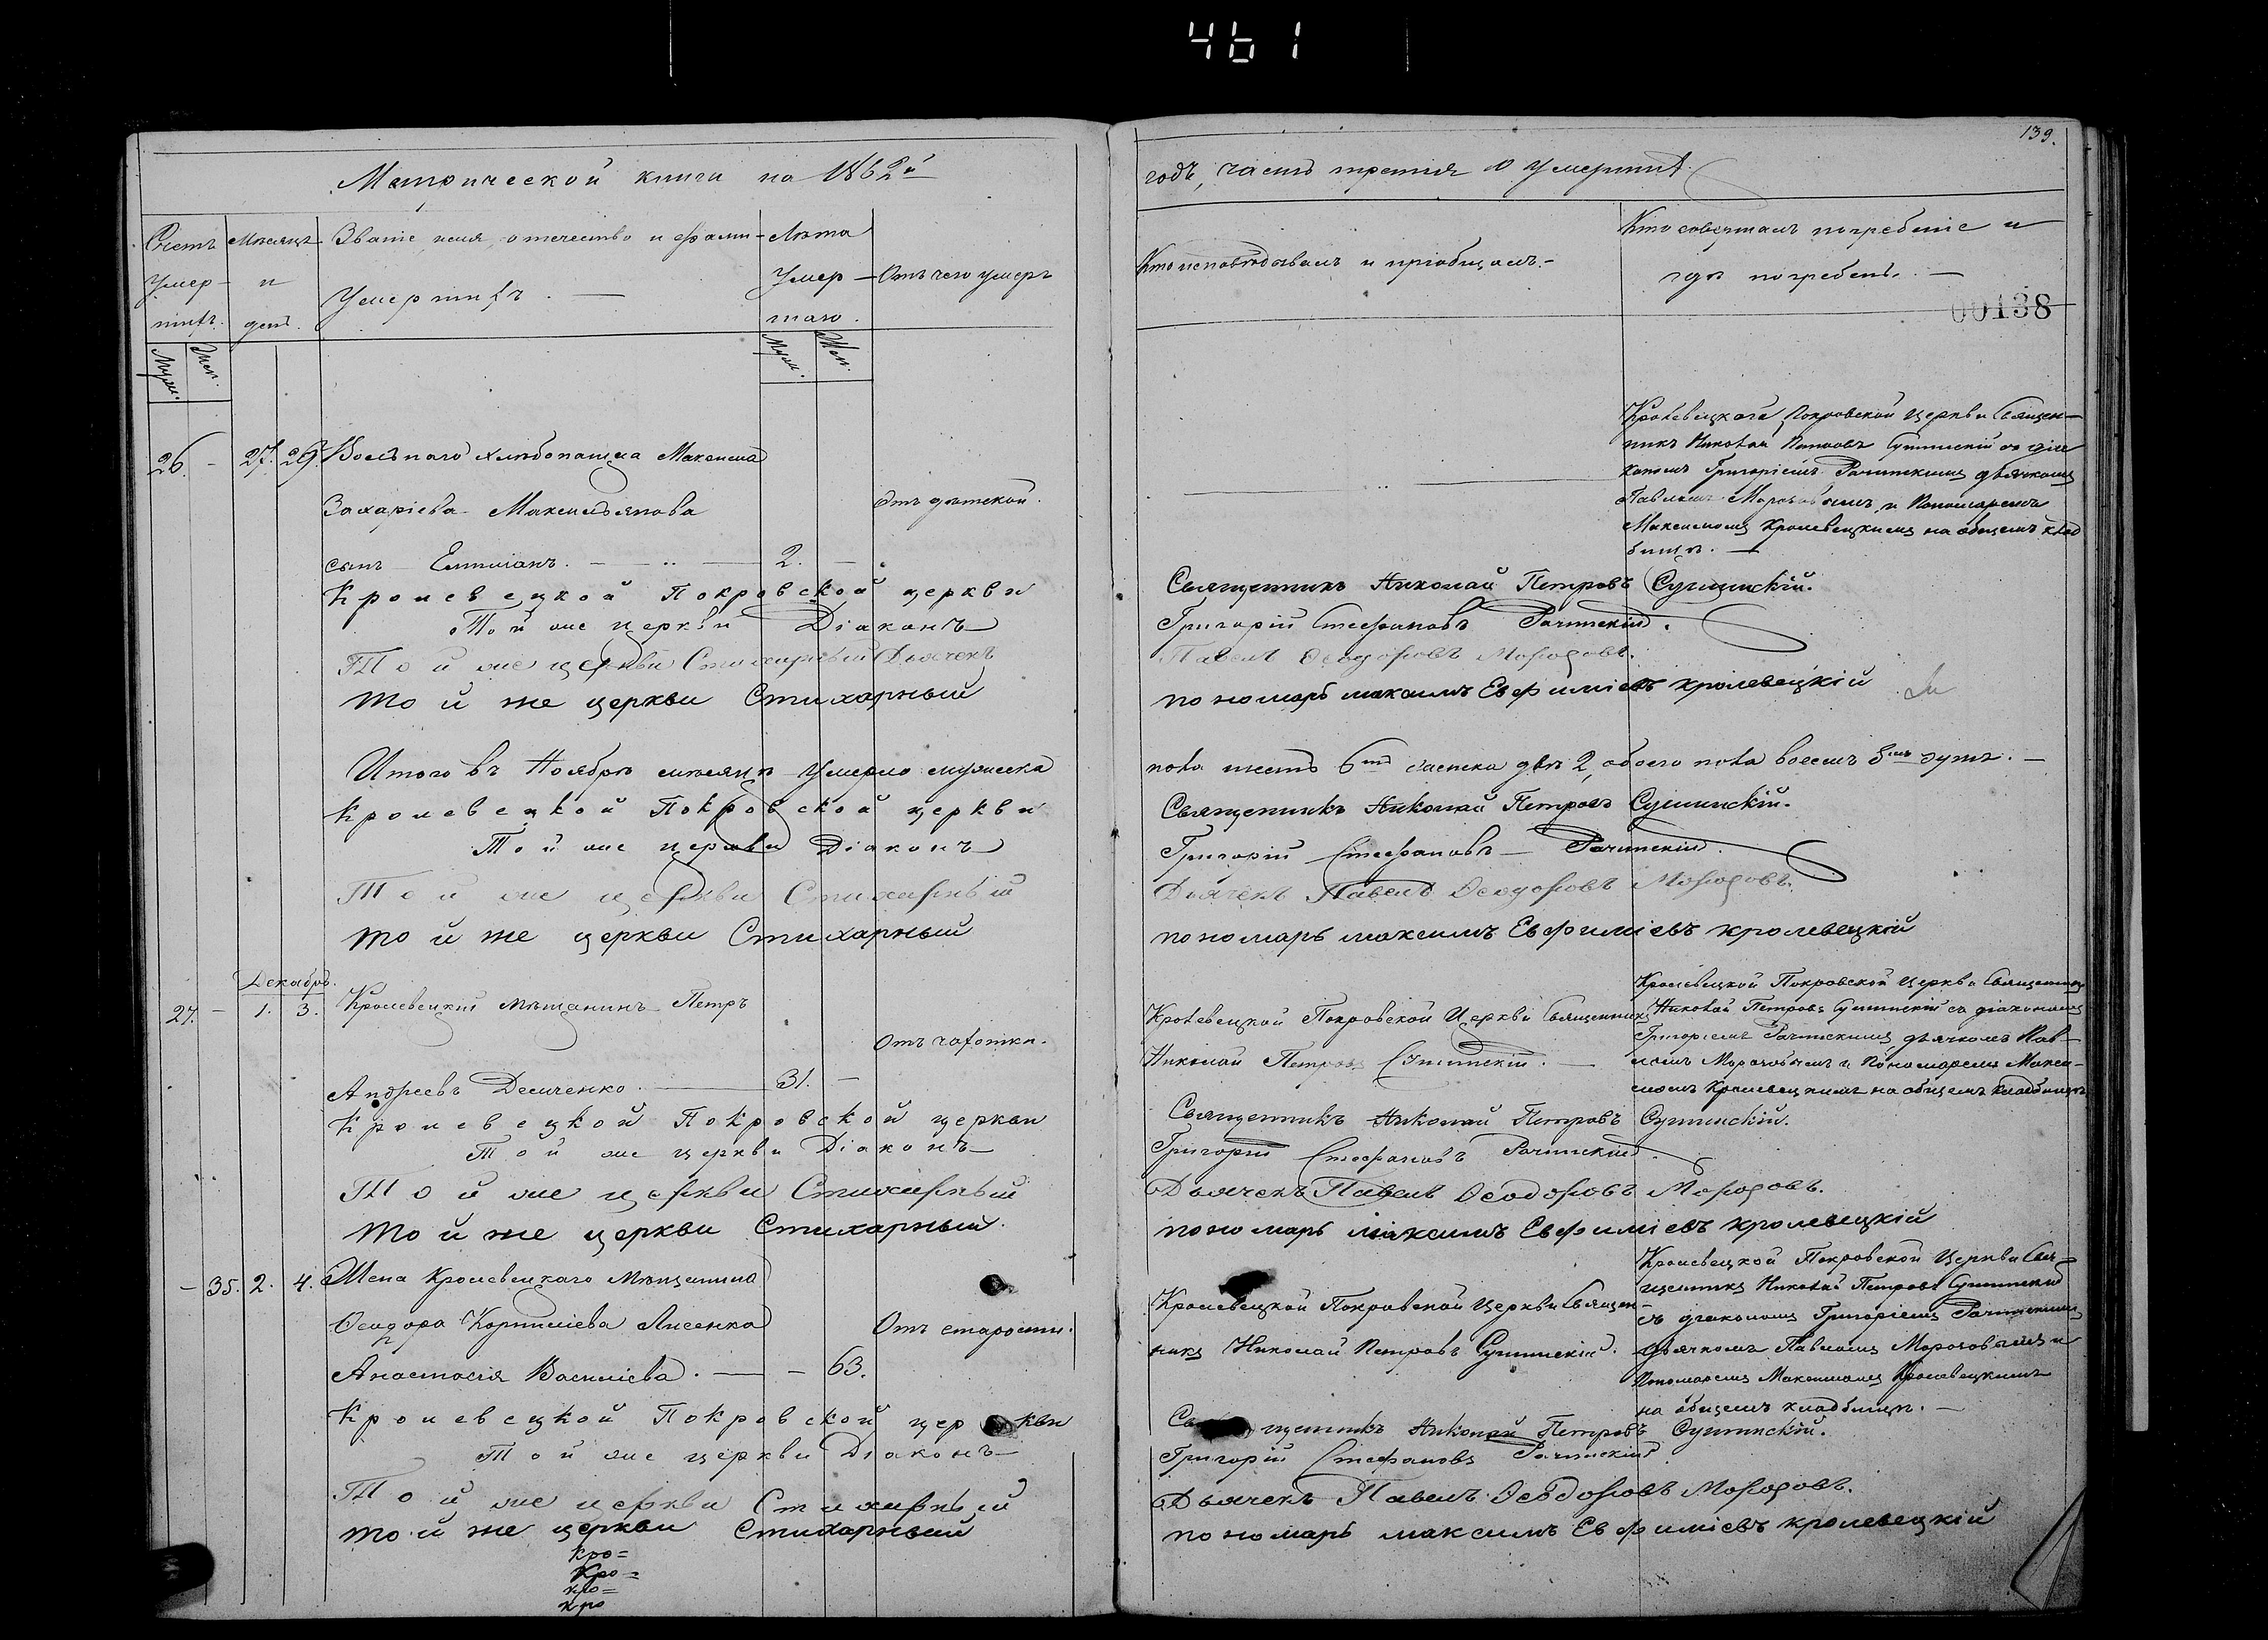 461
139.
Метрической книги на 1862й
годъ, часть третія о умершихъ
Счетъ умер-шихъ.
Мѣсяцъ и день.
Званіе, имя, отечество и фами-
Умершихъ. —
Лѣта Умер-шаго.
Отъ чего умеръ
Кто исповѣдывалъ и пріобщалъ.-
Кто совершалъ погребеніе и
гдѣ погребенъ. —
00138
Муж.
Жен.
Муж.
Жен.
26. - 27. 29. Вольнаго хлѣбопашца Максима
Захаріева Максимьянова
отъ дѣтской.
сынъ Емиліанъ. — 2. —
Кролевецкаго Покровской Церкви Священ-
никъ Николай Петровъ Сушинскій съ діа
кономъ Григоріемъ Рачинскимъ дьячкомъ
Павломъ Морозовымъ, и Пономаремъ
Максимомъ Кролевецкимъ на общемъ клад
бищѣ. —
Кролевецкой Покровской церкви
Священникъ Николай Петровъ Сушинскій.
Той же церкви Діаконъ
Григорій Стефановъ Рачинскій.
Той же церкви Стихарный Дьячекъ
Павелъ Ѳеодоровъ Морозовъ.
той же церкви Стихарный
пономарь максимъ Евфиміевъ кролевецкій
Итого въ Ноябрѣ мѣсяцѣ умерло мужеска
пола шесть 6ть женска двѣ 2, обоего пола восемь 8мь душъ. —
Кролевецкой Покровской церкви
Священникъ Николай Петровъ Сушинскій.
Той же церкви Діаконъ
Григорій Стефановъ — Рачинскій.
Той же церкви Стихарный
Дьячекъ Павелъ Ѳеодоровъ Морозовъ.
той же церкви Стихарный
пономарь максимъ Евфиміевъ кролевецкій
Декабрь.
27. - 1. 3. Кролевецкій мѣщанинъ Петръ
Отъ чахотки.
Андреевъ Демченко. — 31. —
Кролевецкой Покровской Церкви Священникъ
Николай Петровъ Сушинскій. —
Кролевецкой Покровской Церкви Священникъ
Николай Петровъ Сушинскій съ діакономъ
Григоріемъ Рачинскимъ, дьячкомъ Пав-
ломъ Морозовымъ и Пономаремъ Макси-
момъ Кролевецкимъ на общемъ кладбищѣ
Кролевецкой Покровской церкви
Священникъ Николай Петровъ Сушинскій.
Той же церкви Діаконъ
Григорій Стефановъ Рачинскій.
Той же церкви Стихарный
Дьячекъ Павелъ Ѳеодоровъ Морозовъ.
той же церкви Стихарный.
пономарь максимъ Евфиміевъ кролевецкій
- 35. 2. 4. Жена Кролевецкаго Мѣщанина
Ѳеодора Корниліева Лисенка
Отъ старости.
Анастасія Василіева. — - 63.
Кролевецкой Покровской Церкви Священ-
никъ Николай Петровъ Сушинскій.
Кролевецкой Покровской Церкви Свя-
щенникъ Николай Петровъ Сушинскій
съ діакономъ Григоріемъ Рачинскимъ
дьячкомъ Павломъ Морозовымъ и
Пономаремъ Максимомъ Кролевецкимъ
на общемъ кладбищѣ. —
Кролевецкой Покровской церкви
Священникъ Николай Петровъ Сушинскій.
Той же церкви Діаконъ
Григорій Стефановъ Рачинскій
Той же церкви Стихарный
Дьячекъ Павелъ Ѳеодоровъ Морозовъ.
той же церкви Стихарный
пономарь максимъ Евфиміевъ кролевецкій
кро=
Кро=
кро=
кро